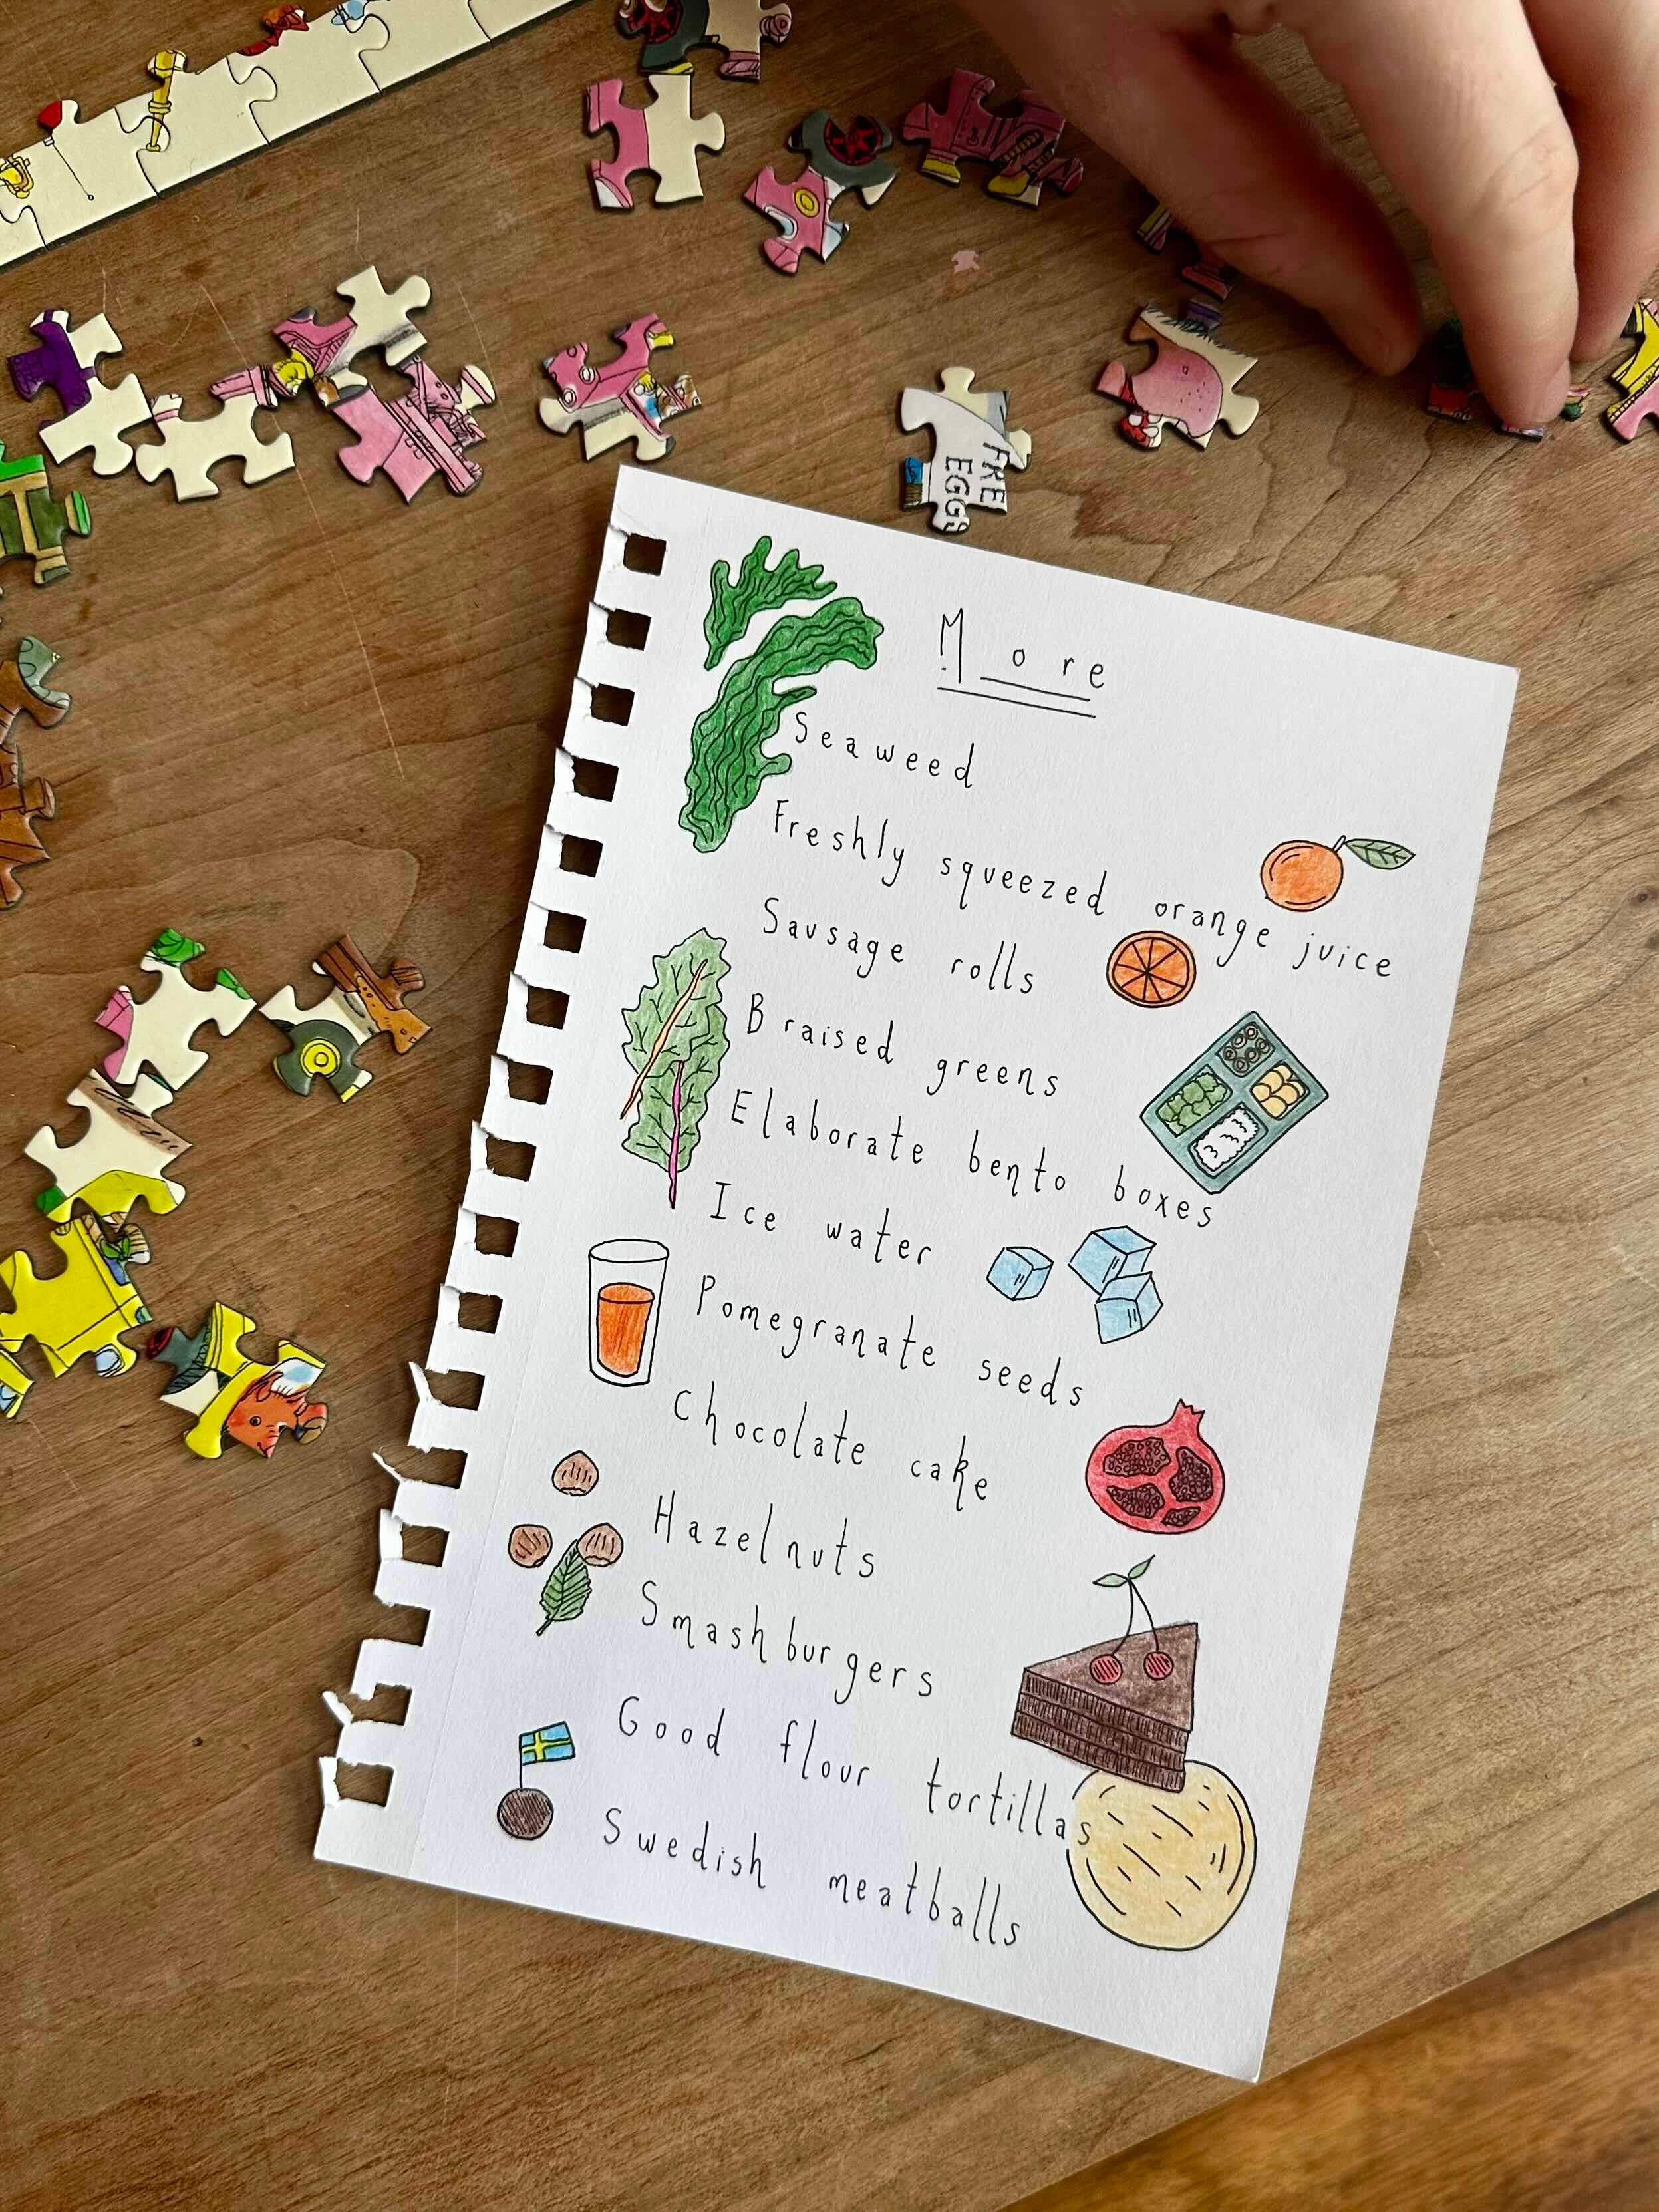 FRE
EGGS
More
Seaweed
Freshly squeezed orange juice
Sausage rolls
Braised greens
Elaborate bento boxes
Ice water
Pomegranate seeds
Chocolate cake
Hazelnuts
Smashburgers
Good flour tortillas
Swedish meatballs